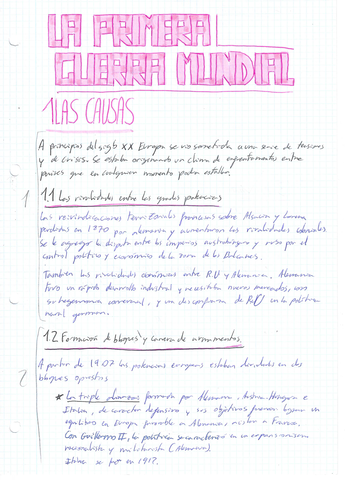 LA PRIMERA
GUERRA MUNDIAL
1 LAS CAUSAS
A principios del siglo XX Europa se vio sometida a una serie de tensiones
y de crisis. Se estaba originando un clima de enfrentamientos entre
países que en cualquier momento podía estallar.
1
1.1 Las rivalidades entre las grandes potencias
Las reivindicaciones territoriales francesas sobre Alsacia y Lorena
perdidas en 1870 por alemania y aumentaron las rivalidades coloniales.
Se le agrega la disputa entre los imperios austrohúngaro y ruso por el
control político y económico de la zona de los Balcanes.
También las rivalidades económicas entre RU y Alemania. Alemania
tuvo un rápido desarrollo industrial y necesitaba nuevos mercados,
su hegemonía comercial, y una desconfianza de RU en la política
naval germana.
1.2 Formación de bloques y carrera de armamentos.
2
A partir de 1907 las potencias europeas estaban divididas en dos
bloques opuestos
* La triple alianza: formada por Alemania, Austria-Hungría e
Italia, de carácter defensivo y sus objetivos fueron lograr un
equilibrio en Europa favorable a Alemania, aislar a Francia.
Con Guillermo II, la política se convirtió en un expansionismo
nacionalista y militarista (Alemania).
Italia se fue en 191